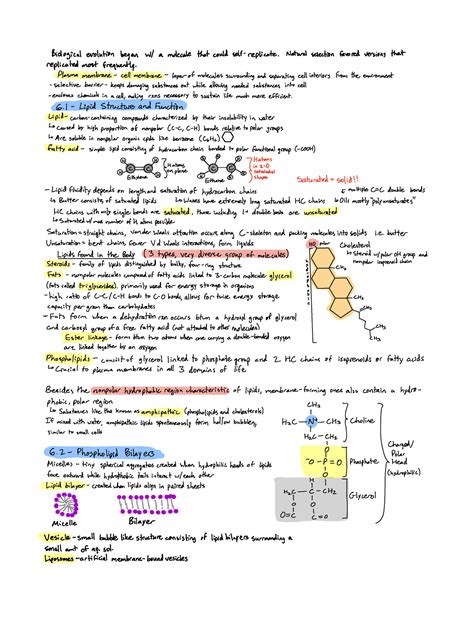 Biological evolution began w/ a molecule that could self-replicate. Natural selection favored versions that
replicated most frequently.
Plasma membrane - cell membrane - layer of molecules surrounding and separating cell interiors from the environment
- selective barrier - keeps damaging substances out while allowing needed substances into cell
- encloses chemicals in a cell, making rxns necessary to sustain life much more efficient.
6.1 - Lipid Structure and Function
Lipid - carbon-containing compounds characterized by their insolubility in water
↳ Caused by high proportion of nonpolar (C-C, C-H) bonds relative to polar groups
↳ Are soluble in nonpolar organic cpds like benzene (C6H6)
Fatty acid - simple lipid consisting of hydrocarbon chain bonded to polar functional group (-COOH)
H atoms
on
plane
Ethene
H atoms
in 2-D
tetrahedral
shape
Ethane
Saturated = solid!!
- Lipid fluidity depends on length and saturation of hydrocarbon chains
multiple C=C double bonds
↳ Butter consists of saturated lipids
↳ Waxes have extremely long saturated HC chains
↳ Oils mostly "polyunsaturates"
HC chains with only single bonds are saturated, those including 1+ double bonds are unsaturated
↳ Saturated w/ max number of H atoms possible
Saturation = straight chains, Vander Waals attraction occurs along C-skeleton and packing molecules into solids i.e. butter
Unsaturation = bent chains, fewer V d Waals interactions, form liquids
Lipids found in the Body (3 types, very diverse group of molecules)
Steroids - family of lipids distinguished by bulky, four-ring structure
Fats - nonpolar molecules compound of fatty acids linked to 3-carbon molecule glycerol
(fats called triglycerides). primarily used for energy storage in organisms
- high ratio of C-C/C-H bonds to C-O bonds allows for twice energy storage
capacity per gram than carbohydrates
- Fats form when a dehydration rxn occurs btwn a hydroxyl group of glycerol
and carboxyl group of a free fatty acid (not attached to other molecules)
Ester linkage - form btwn two atoms when one carrying a double-bonded oxygen
are linked together by an oxygen
HO
polar
Cholesterol
↳ Steroid w/ polar OH group and
nonpolar isoprenoid chain
CH3
CH3
CH3
CH3
CH3
Phospholipids - consist of glycerol linked to phosphate group and 2 HC chains of isoprenoids or fatty acids
↳ Crucial to plasma membranes in all 3 domains of life
Besides the nonpolar hydrophobic region characteristics of lipids, membrane-forming ones also contain a hydro-
phobic, polar region
↳ Substances like this known as amphipathic (phospholipids and cholesterol)
If mixed with water, amphipathic lipids spontaneously form hollow bubbles,
similar to small cells
CH3
H3C - N+ - CH3
Choline
H2C - CH2
O
-O - P = O
Phosphate
O
H
H2C - C - CH2
Glycerol
O O
O=C C=O
Charged/
Polar
Head
(hydrophilic)
6.2 - Phospholipid Bilayers
Micelles - tiny spherical aggregates created when hydrophilic heads of lipids
face outward while hydrophobic tails interact w/ each other
Lipid bilayer - created when lipids align in paired sheets
Micelle
Bilayer
Vesicle - small bubble like structure consisting of lipid bilayers surrounding a
small amt of aq. sol.
Liposomes - artificial membrane-bound vesicles